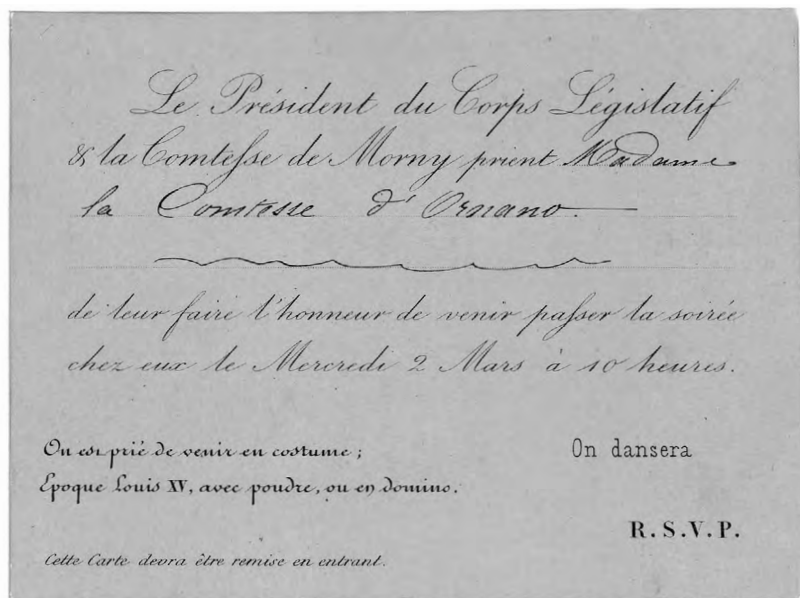 Le Président du Corps Législatif
& la Comtesse de Morny prient Madame
la Comtesse d'Ornano.
de leur faire l'honneur de venir passer la soirée
chez eux le Mercredi 2 Mars à 10 heures.
On est prié de venir en costume ;
Epoque Louis XV, avec poudre, ou en domino.
On dansera
R. S. V. P.
Cette Carte devra être remise en entrant.